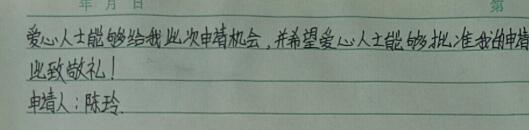 年 月 日 第
爱心人士能够给我此次申请机会,并希望爱心人士能够批准我的申请
此致敬礼!
申请人:陈玲